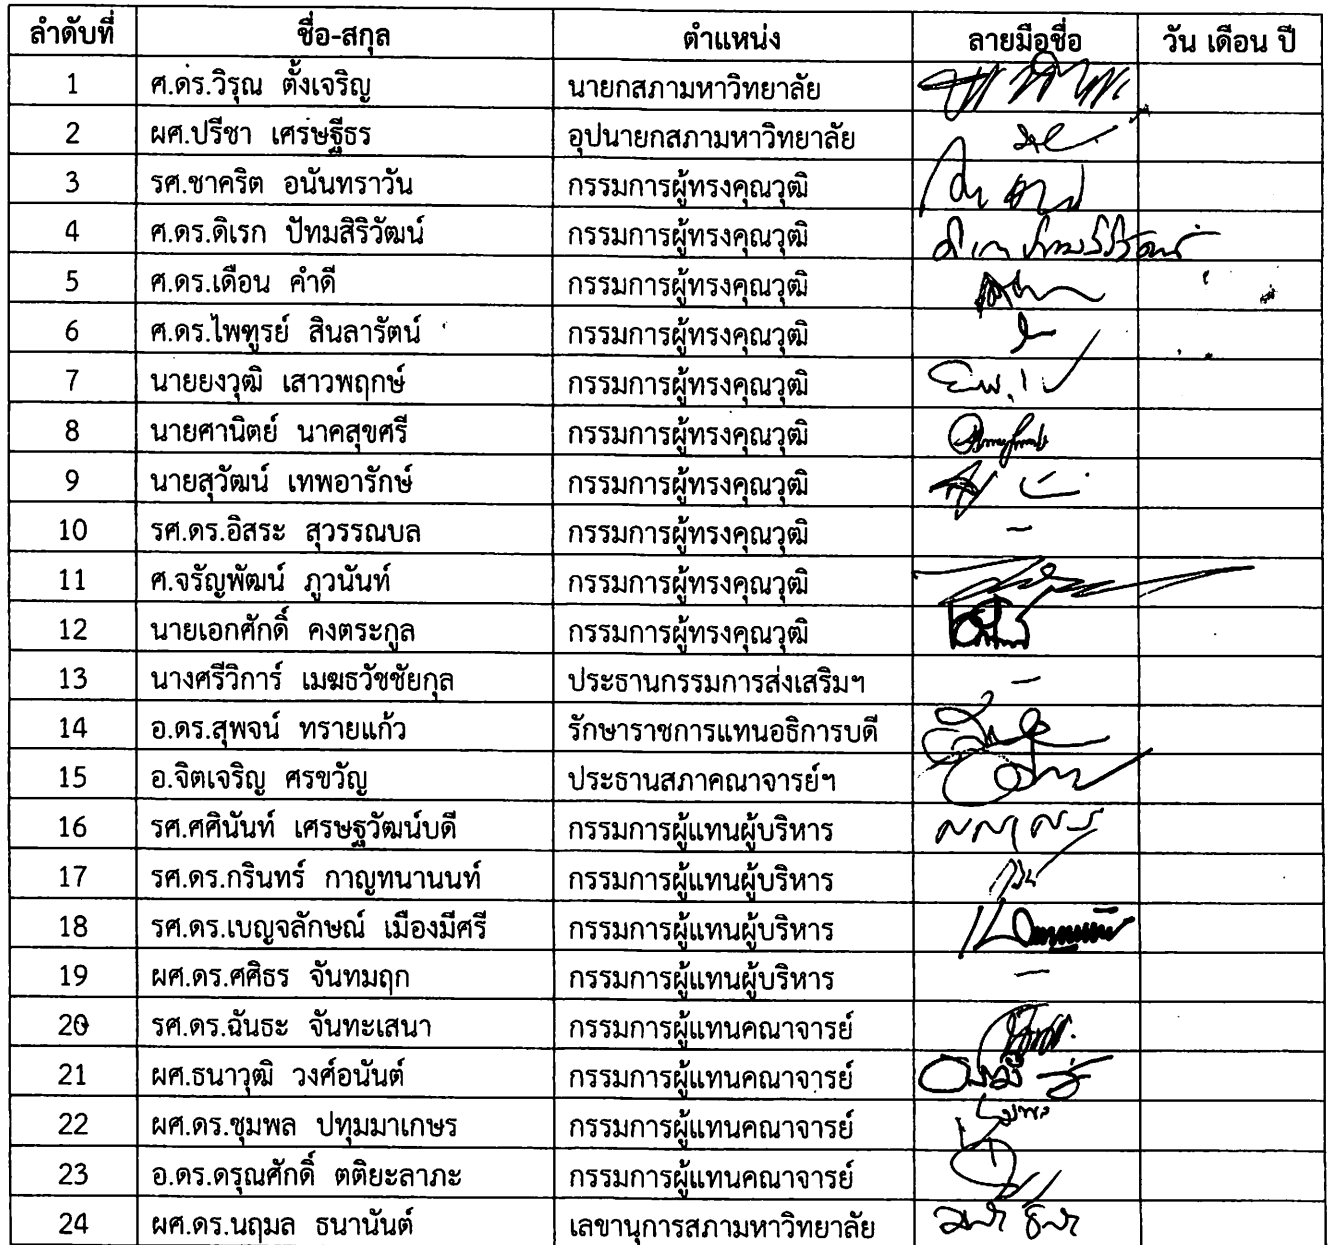 ลำดับที่ ชื่อ-สกุล ตำแหน่ง ลายมือชื่อ วัน เดือน ปี
1 ศ.ดร.วิรุณ ตั้งเจริญ นายกสภามหาวิทยาลัย
2 ผศ.ปรีชา เศรษฐีธร อุปนายกสภามหาวิทยาลัย
3 รศ.ชาคริต อนันทราวัน กรรมการผู้ทรงคุณวุฒิ
4 ศ.ดร.ดิเรก ปัทมสิริวัฒน์ กรรมการผู้ทรงคุณวุฒิ
5 ศ.ดร.เดือน คำดี กรรมการผู้ทรงคุณวุฒิ
6 ศ.ดร.ไพฑูรย์ สินลารัตน์ กรรมการผู้ทรงคุณวุฒิ
7 นายยงวุฒิ เสาวพฤกษ์ กรรมการผู้ทรงคุณวุฒิ
8 นายศานิตย์ นาคสุขศรี กรรมการผู้ทรงคุณวุฒิ
9 นายสุวัฒน์ เทพอารักษ์ กรรมการผู้ทรงคุณวุฒิ
10 รศ.ดร.อิสระ สุวรรณบล กรรมการผู้ทรงคุณวุฒิ -
11 ศ.จรัญพัฒน์ ภูวนันท์ กรรมการผู้ทรงคุณวุฒิ
12 นายเอกศักดิ์ คงตระกูล กรรมการผู้ทรงคุณวุฒิ
13 นางศรีวิการ์ เมฆธวัชชัยกุล ประธานกรรมการส่งเสริมฯ -
14 อ.ดร.สุพจน์ ทรายแก้ว รักษาราชการแทนอธิการบดี
15 อ.จิตเจริญ ศรขวัญ ประธานสภาคณาจารย์ฯ
16 รศ.ศศินันท์ เศรษฐวัฒน์บดี กรรมการผู้แทนผู้บริหาร
17 รศ.ดร.กรินทร์ กาญทนานนท์ กรรมการผู้แทนผู้บริหาร
18 รศ.ดร.เบญจลักษณ์ เมืองมีศรี กรรมการผู้แทนผู้บริหาร
19 ผศ.ดร.ศศิธร จันทมฤก กรรมการผู้แทนผู้บริหาร -
20 รศ.ดร.ฉันธะ จันทะเสนา กรรมการผู้แทนคณาจารย์
21 ผศ.ธนาวุฒิ วงศ์อนันต์ กรรมการผู้แทนคณาจารย์
22 ผศ.ดร.ชุมพล ปทุมมาเกษร กรรมการผู้แทนคณาจารย์
23 อ.ดร.ดรุณศักดิ์ ตติยะลาภะ กรรมการผู้แทนคณาจารย์
24 ผศ.ดร.นฤมล ธนานันต์ เลขานุการสภามหาวิทยาลัย